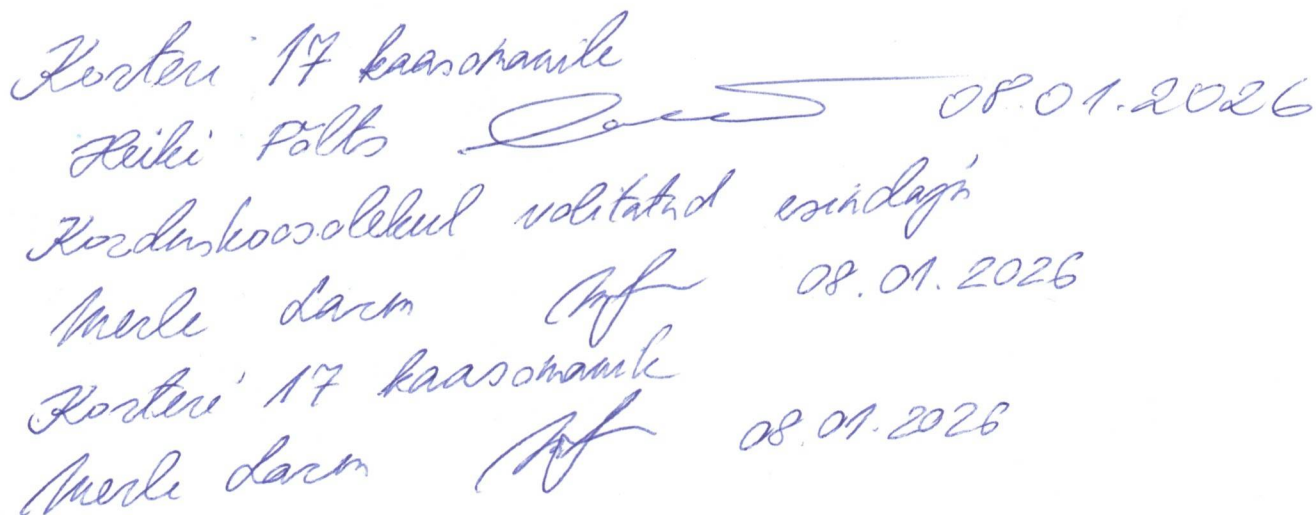 Korteri 17 kaasomanik
Heiki Põlts 08.01.2026
Korduskoosolekul volitatud esindaja
Merle Larm 08.01.2026
Korteri 17 kaasomanik
Merle Larm 08.01.2026